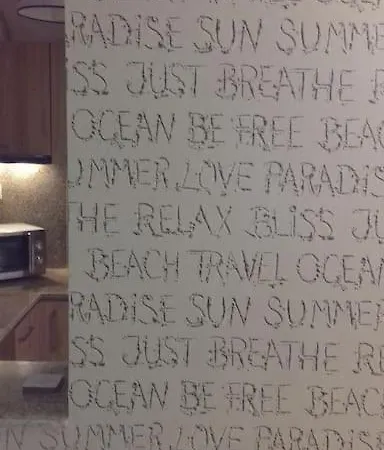 RADISE SUN SUMME
SS JUST BREATHE
OCEAN BE FREE BEAC
UMMER LOVE PARADIS
HE RELAX BLISS JU
BEACH TRAVEL OCEAN
RADISE SUN SUMMER
SS JUST BREATHE RE
OCEAN BE FREE BEAC
N SUMMER LOVE PARADIS